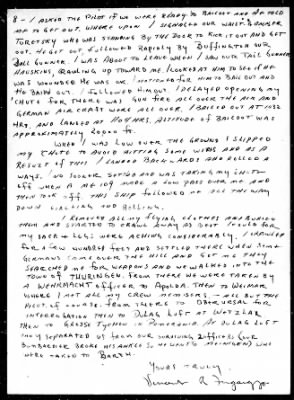 8 - I ASKED THE PILOT IF WE WERE READY TO BAILOUT AND HE TOLD
ME TO GET OUT. WHEREUPON I SIGNALED OUR WAIST GUNNER
TORETSKY WHO WAS STANDING BY THE DOOR TO KICK IT OUT AND GET
OUT. HE GOT OUT, FOLLOWED RAPIDLY BY BUFFINGTON OUR
BALL GUNNER. I WAS ABOUT TO LEAVE WHEN I SAW OUR TAIL GUNNER
HAUSKINS, CRAWLING UP TOWARD ME. I LOOKED AT HIM TO SEE IF HE
WAS WOUNDED HE WAS OK. I MOTIONED FOR HIM TO BAIL OUT AND
HE BAILED OUT. I FOLLOWED HIM OUT. I DELAYED OPENING MY
CHUTE FOR THERE WAS GUN FIRE ALL OVER THE AIR AND
GERMAN AIRCRAFT WERE ALL OVER. I BAILED OUT AT
HRS, AND LANDED AT HRS. ALTITUDE OF BAILOUT WAS
APPROXIMATELY 20,000 FT.
WHEN I WAS LOW OVER THE GROUND I SLIPPED
MY CHUTE TO AVOID HITTING SOME WIRES AND AS A
RESULT OF THIS I LANDED BACKWARDS AND ROLLED A
WAYS. NO SOONER I WAS TAKING MY CHUTE
OFF WHEN A ME 109 MADE A LOW PASS OVER ME AND
THEN TOOK OFF THIS SHIP FOLLOWED ME ALL THE WAY
DOWN CIRCLING AND
I REMOVED ALL MY FLYING CLOTHES AND BURIED
THEM AND STARTED TO CRAWL AWAY AS BEST I COULD FOR
MY BACK & LEGS WERE ACHING CONSIDERABLY. I CRAWLED
FOR A FEW HUNDRED FEET AND SETTLED THERE WHEN SOME
GERMANS COME OVER THE HILL AND GET ME THEY
SEARCHED ME FOR WEAPONS AND WE WALKED INTO THE
TOWN OF THURINGEN. FROM THERE WE WERE TAKEN BY
A WEHRMACHT OFFICER TO APOLDA THEN TO WEIMAR
WHERE I MET ALL MY CREW MEMBERS - ALL BUT THE
PILOT OF COURSE. FROM THERE TO OBERURSAL FOR
INTERROGATION THEN TO DULAG LUFT AT WETZLAR
THEN TO GROSSE TYCHOW IN POMERANIA. AT DULAG LUFT
THEY SEPARATED US FROM OUR SURVIVING 2 OFFICERS (OUR
BOMBARDIER BROKE HIS ANKLE SO HE WENT TO MEININGEN) WHO
WERE TAKEN TO BARTH.
YOURS TRULY